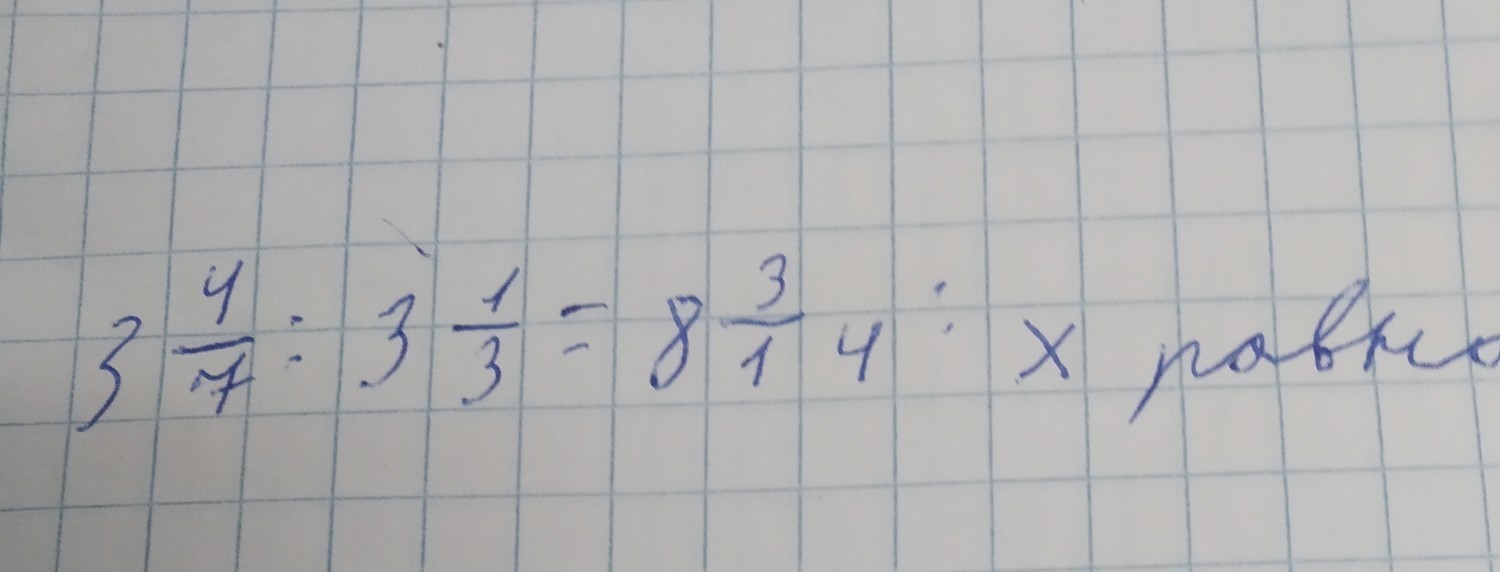 3 4/7 : 3 1/3 = 8 3/14 : x равно